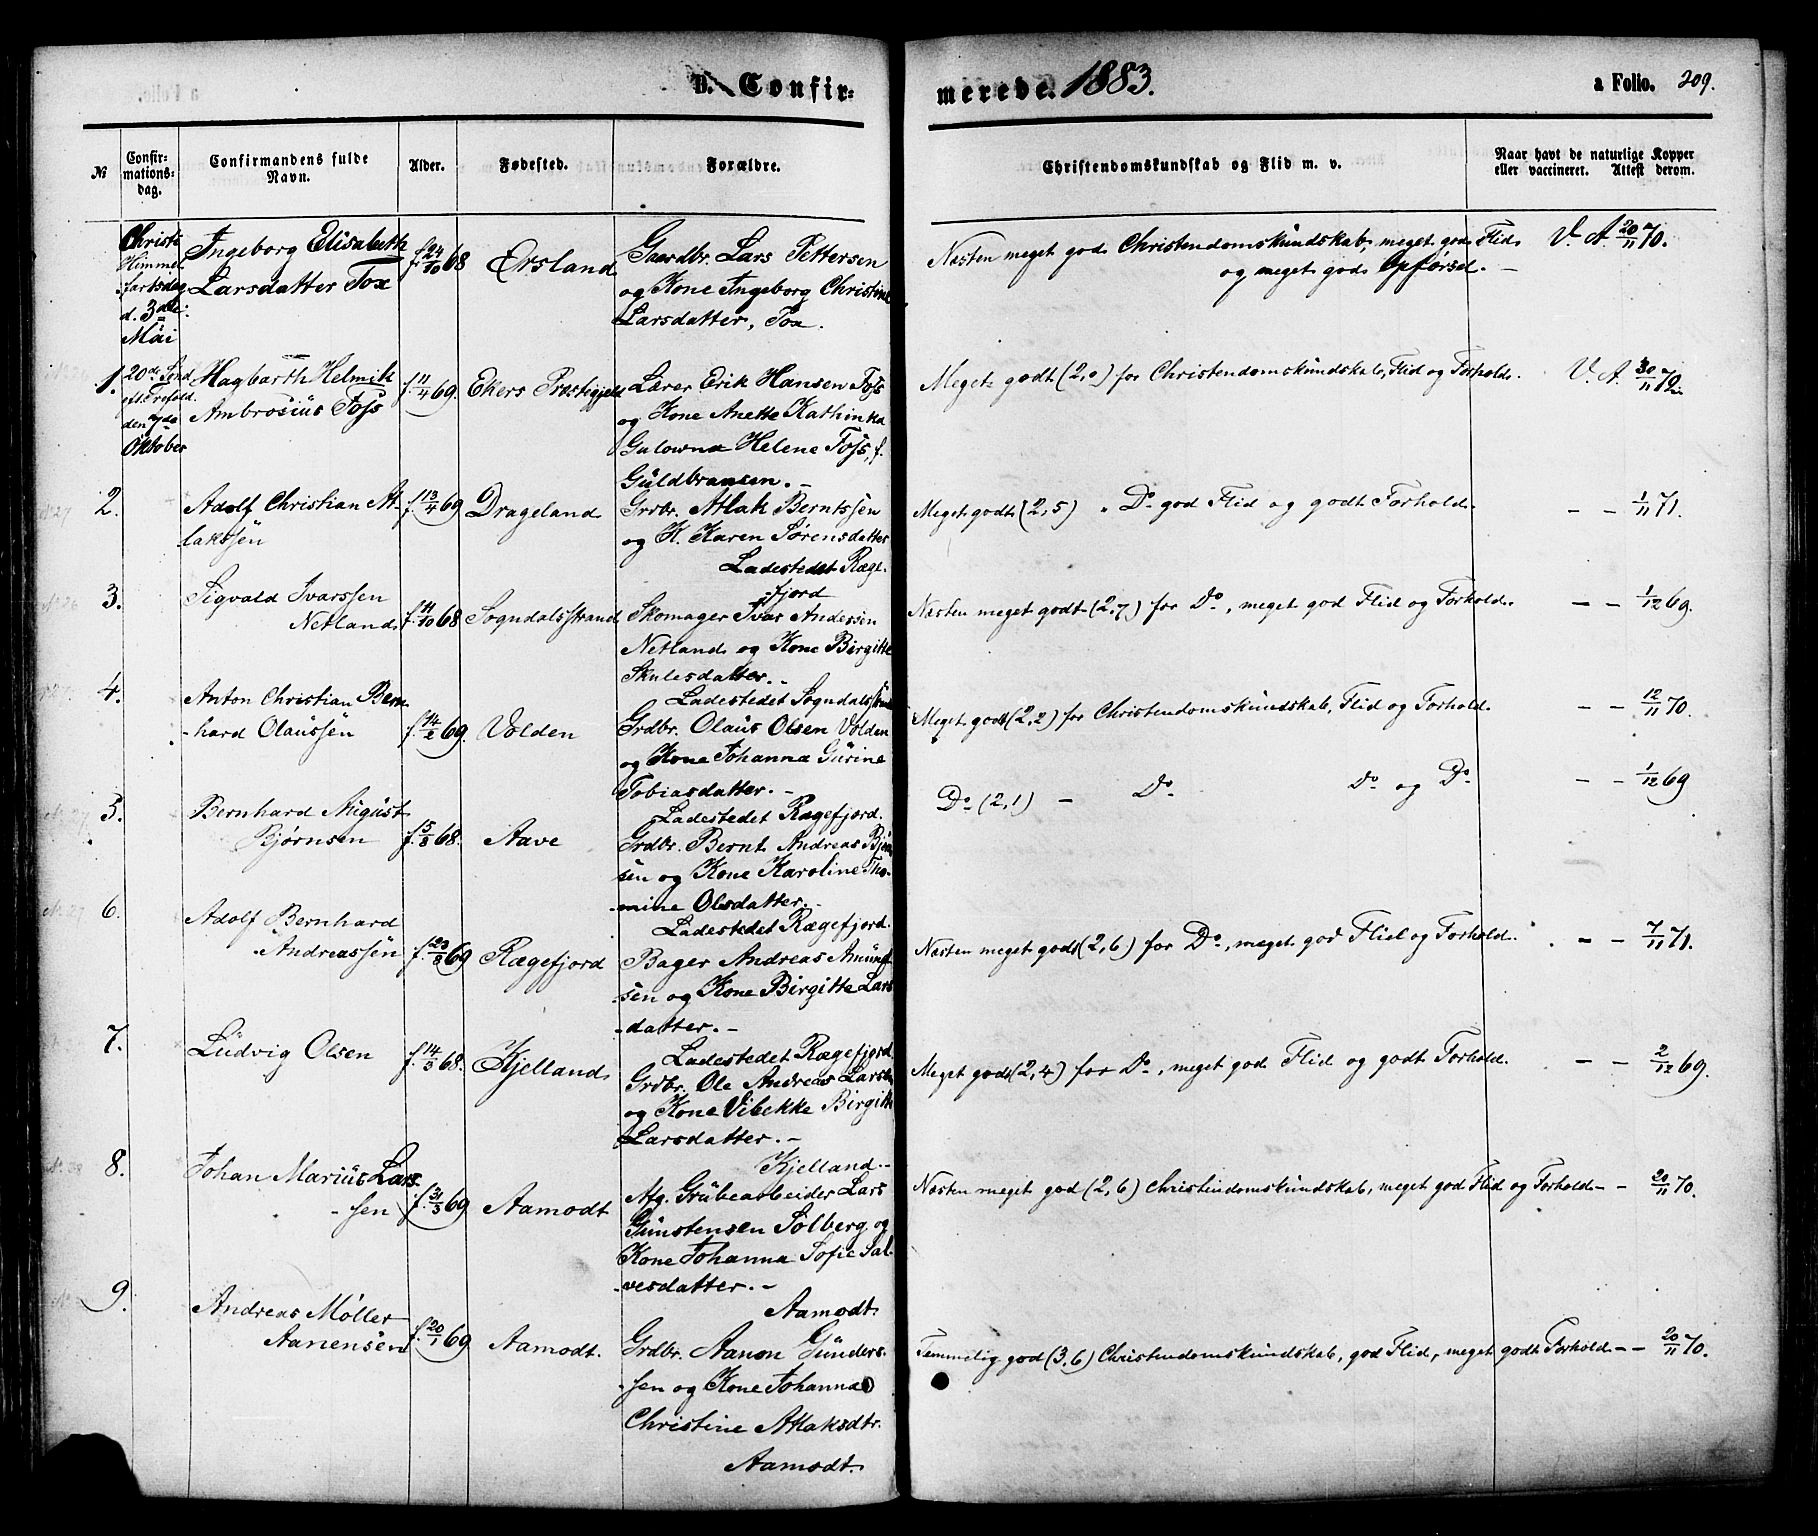 B. Confirmerede. 1883. a Folio. 209.
№ Confirmationsdag. Confirmandens fulde Navn. Alder. Fødested. Forældre. Christendomskundskab og Flid m. v. Naar havt de naturlige Kopper eller vaccineret. Attest derom.
Christi Ingeborg Elisabeth f. 24/10 68 Ørsland Gaardbr. Lars Pettersen Næsten meget god Christendomskundskab, meget god Flid V. A. 20/11 70.
Himmel Larsdatter Tox og Kone Ingeborg Christine og meget god Opførsel. –
fartsdag Larsdatter, Tox.
d. 3die
Mai
1. 20de Sønd Hagbarth Helmik f. 11/4 69. Ekers Præstegjeld Lærer Erik Hansen Foss Meget godt (2,0) for Christendomskundskab, Flid og Forhold. V. A. 30/11 72.
efter Trefold. Ambrosius Foss og Kone Anette Kathinka
den 7de Galowna Helene Foss, f.
Oktober Guldbransen. –
2. Adolf Christian At- f. 13/4 69 Drageland Grdbr. Atlak Berntssen Meget godt (2,5) " Do god Flid og godt Forhold. – – 1/11 71.
lakssen og K. Karen Sørensdatter
Ladestedet Ræge-
fjord
3. Sigvald Ivarssen Skomager Ivar Andersen Næsten meget godt (2,7) for Do, meget god Flid og Forhold. – – 1/12 69.
Netland f. 11/10 68 Sogndalsstrand Netland og Kone Birgitte
Skulesdatter. –
Ladestedet Sogndalsstrand
4. Anton Christian Bern Grdbr. Olaus Olsen Volden Meget godt (2,2) for Christendomskundskab, Flid og Forhold. – – 12/11 70.
-hard Olaussen f. 14/2 69. Volden og Kone Johanna Gurine
Tobiasdatter. –
Ladestedet Rægefjord.
5. Bernhard August Grdbr. Bernt Andreas Bjørn Do (2,1) – Do Do og Do – – 1/12 69
Bjørnsen f. 5/8 68. Aave sen og Kone Karoline Tho-
-mine Olsdatter. –
Ladestedet Rægefjord.
6. Adolf Bernhard Bager Andreas Amund Næsten meget godt (2,6) for Do, meget god Flid og Forhold. – – 7/11 71.
Andreassen f. 23/3 69 Rægefjord sen og Kone Birgitte Lars
-datter. –
Ladestedet Rægefjord.
7. Ludvig Olsen f. 14/3 68. Kjelland Grdbr. Ole Andreas Larsen Meget godt (2,4) for Do, meget god Flid og godt Forhold. – – 2/12 69.
og Kone Vibekke Birgitte
Larsdatter. –
Kjelland. –
8. Johan Marius Lars Afg. Grubearbeider Lars Næsten meget god (2,6) Christendomskundskab, meget god Flid og Forhold – – 20/11 70.
-sen f. 31/3 69 Aamodt Gunstensen Solberg og
Kone Johanna Sofie Sal-
-vesdatter. –
Aamodt
9. Andreas Møller Grdbr. Aanon Gunders- Temmelig god (3,6) Christendomskundskab, god Flid, meget godt Forhold – – 20/11 70.
Aanensen f. 20/1 69 Aamodt. -sen og Kone Johanna
Christine Atlaksdtr.
Aamodt.